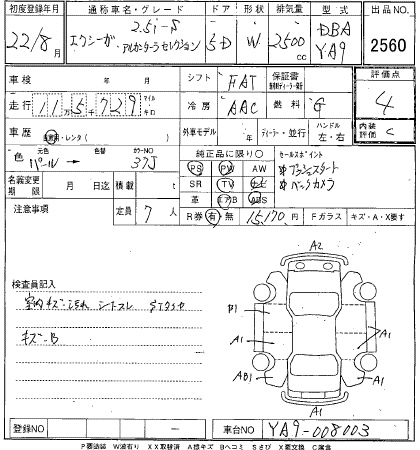 初度登録年月 通称車名・グレード ドア 形状 排気量 型式 出品NO.
22/8月 エクシーガ 2.5i-S アルカンターラセレクション 5D W 2500cc DBA YA9 2560
車検 年 月 シフト FAT 保証書 評価点
走行 11万5729 マイル キロ 冷房 AAC 燃料 G 4
車歴 ・レンタ( ) 外車モデル 年 ディーラー・並行 ハンドル 左・右 内装評価 C
色 元色 パール 色替 カラーNO 37J 純正品に限り〇 セールスポイント
PS PW AW プッシュスタート
名義変更期限 月 日迄 積載 t SR TV ナビ バックカメラ
革 エアB ABS
注意事項 定員 7人 R券 有・無 15,170円 Fガラス キズ・A・X要す
A2
検査員記入
室内キズ・汚れ シートスレ
キズ・B
B1 A1 A1 AB1 A1 A1
登録NO 車台NO YA9-008003
P要塗装 W波有り XX取替済 A線キズ Bヘコミ Sさび X要交換 C腐食